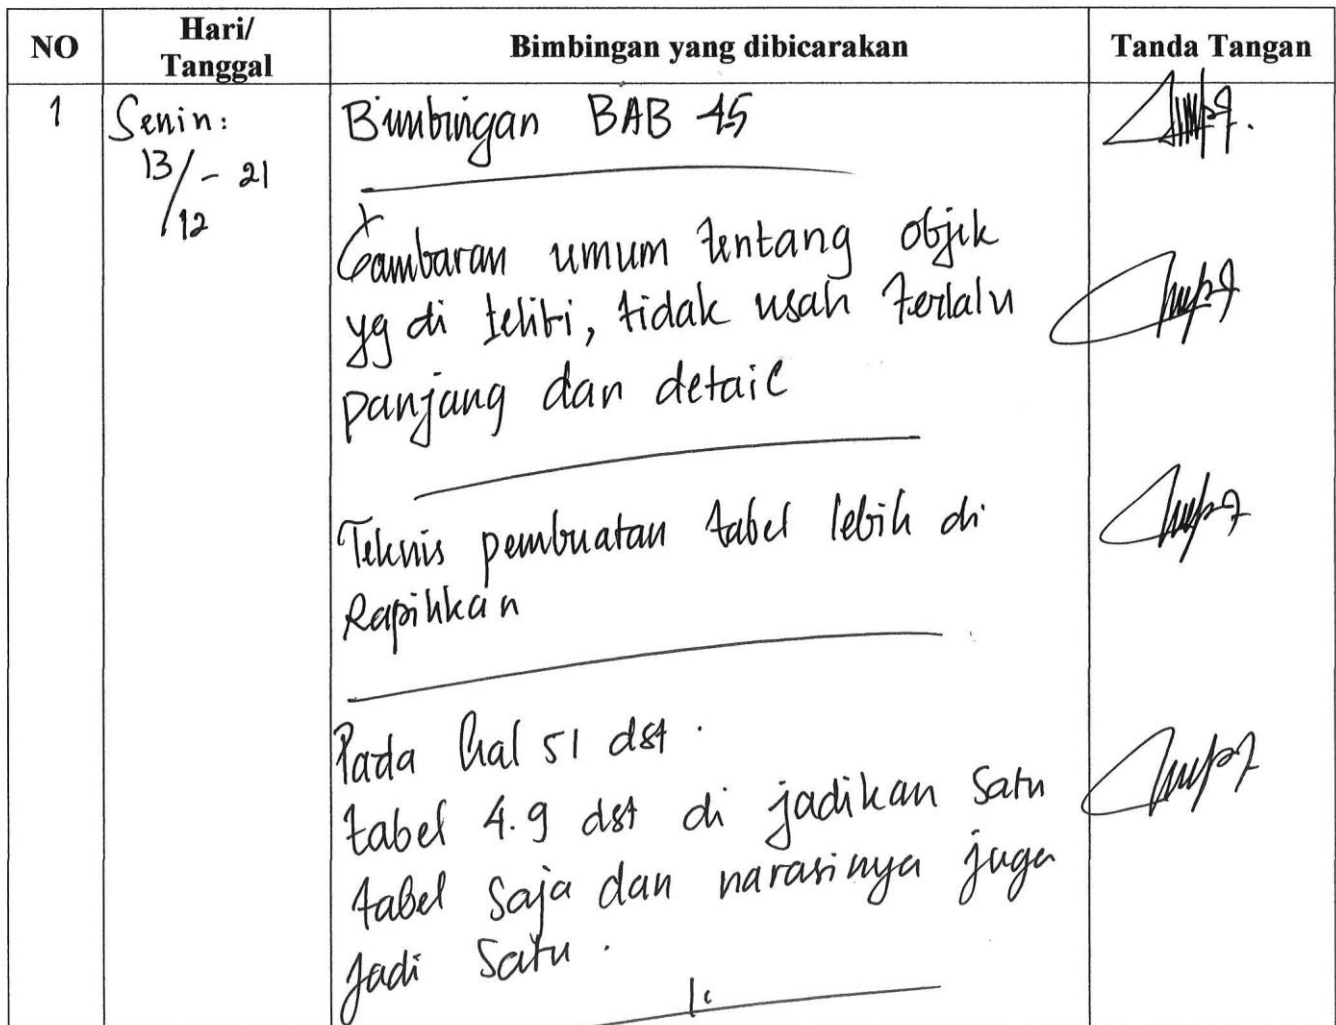 NO Hari/ Tanggal Bimbingan yang dibicarakan Tanda Tangan
1 Senin: Bimbingan BAB 45
13/12 - 21
Gambaran umum tentang objek
yg di teliti, tidak usah terlalu
panjang dan detail
Teknis pembuatan tabel lebih di
Rapihkan
Pada hal 51 dst.
tabel 4.9 dst di jadikan satu
tabel saja dan narasinya juga
jadi satu.